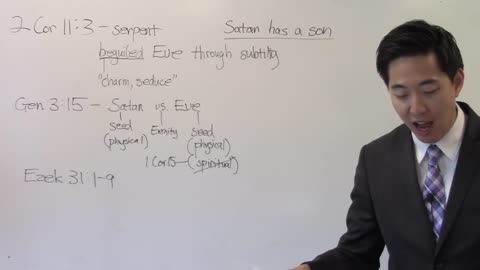 2 Cor 11:3 - serpent
Satan has a son
beguiled Eve through subtilty
"charm, seduce"
Gen 3:15 - Satan vs. Eve
seed Enmity seed
(physical) (physical)
1 Cor 15 (spiritual)
Ezek 31:1-9